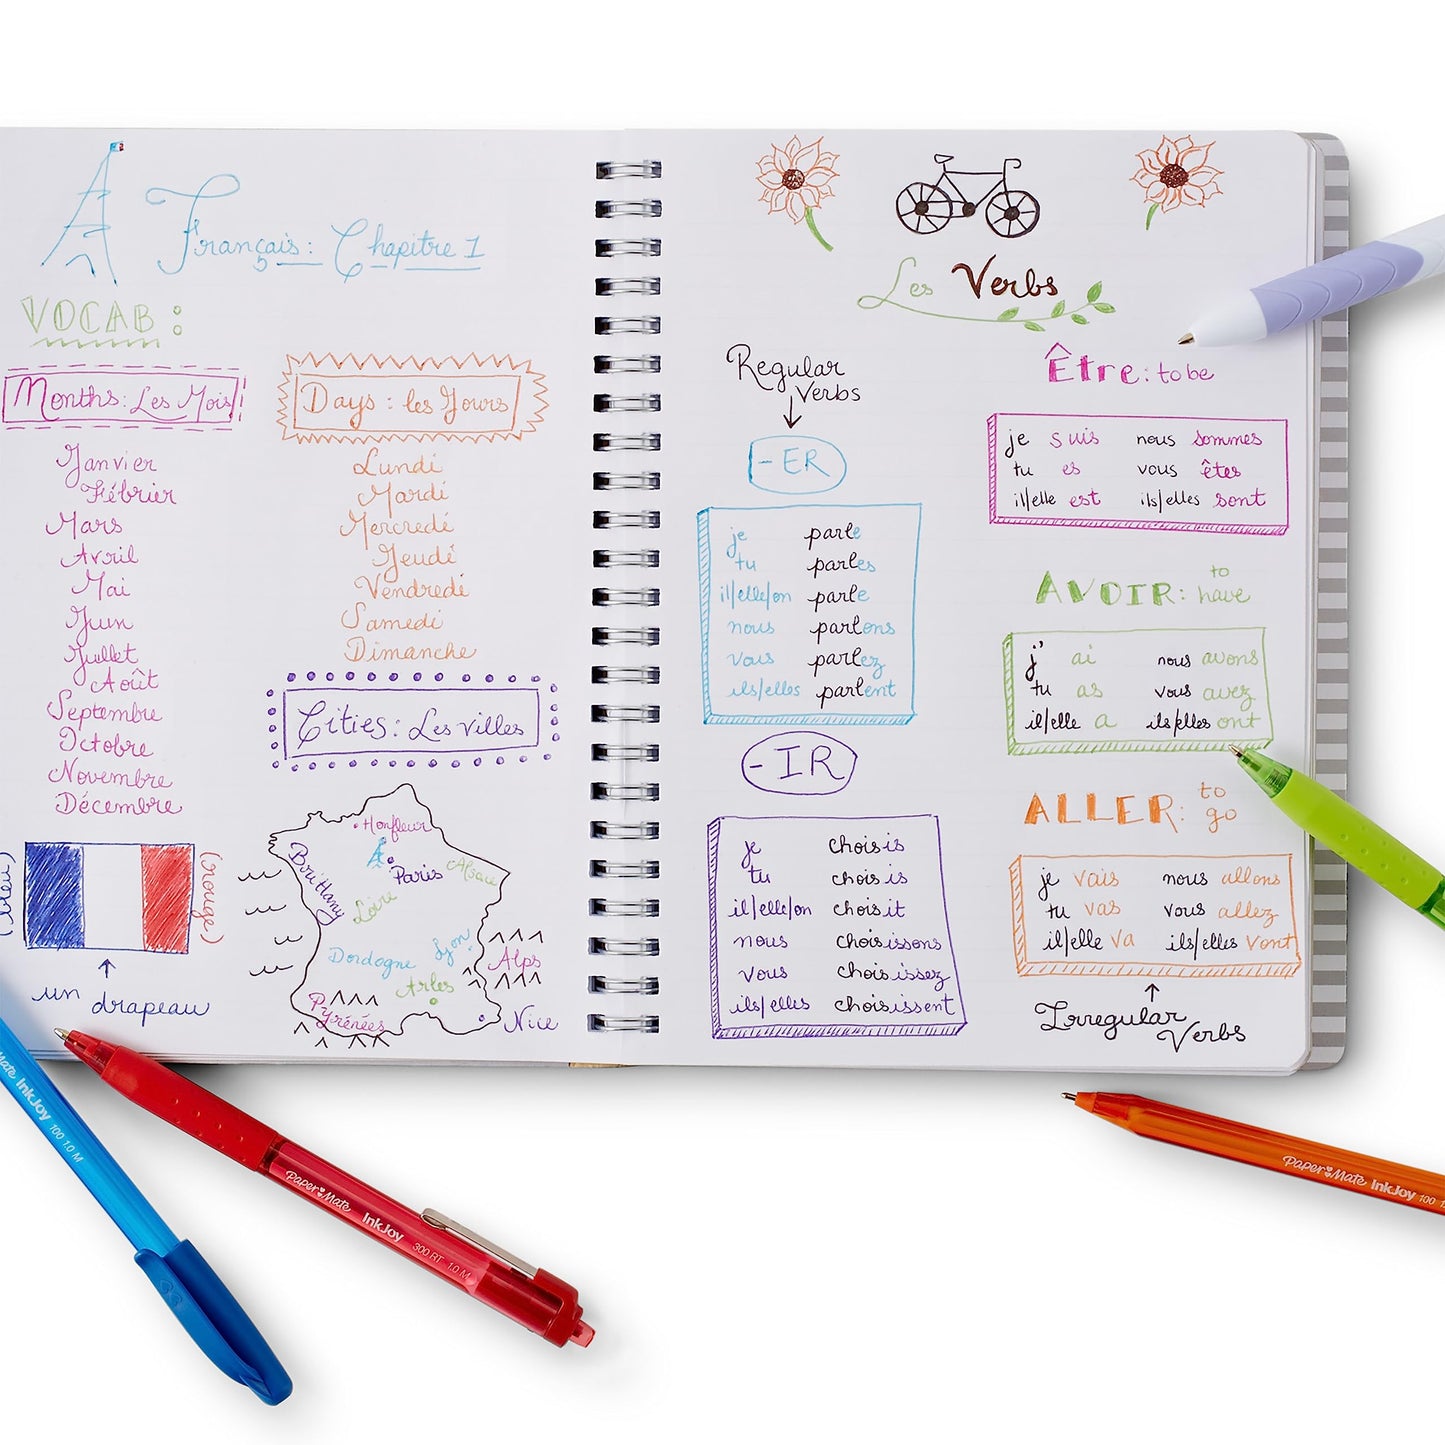 Français: Chapitre 1
VOCAB:
Months: Les Mois
Janvier
Fébrier
Mars
Avril
Mai
Juin
Juillet
Août
Septembre
Octobre
Novembre
Décembre
Days: les Jours
Lundi
Mardi
Mercredi
Jeudi
Vendredi
Samedi
Dimanche
Cities: Les villes
Honfleur
Brittany
Paris
Alsace
Loire
Dordogne
Lyon
Alps
Arles
Pyrénées
Nice
(bleu)
(rouge)
un drapeau
Les Verbs
Regular
Verbs
-ER
je parle
tu parles
il/elle/on parle
nous parlons
vous parlez
ils/elles parlent
-IR
je choisis
tu choisis
il/elle/on choisit
nous choisissons
vous choisissez
ils/elles choisissent
Être: to be
je suis nous sommes
tu es vous êtes
il/elle est ils/elles sont
AVOIR: to have
j' ai nous avons
tu as vous avez
il/elle a ils/elles ont
ALLER: to go
je vais nous allons
tu vas vous allez
il/elle va ils/elles vont
Irregular
Verbs
Mate InkJoy 100 1.0 M
Paper Mate InkJoy 300 RT 1.0 M
Paper Mate InkJoy 100